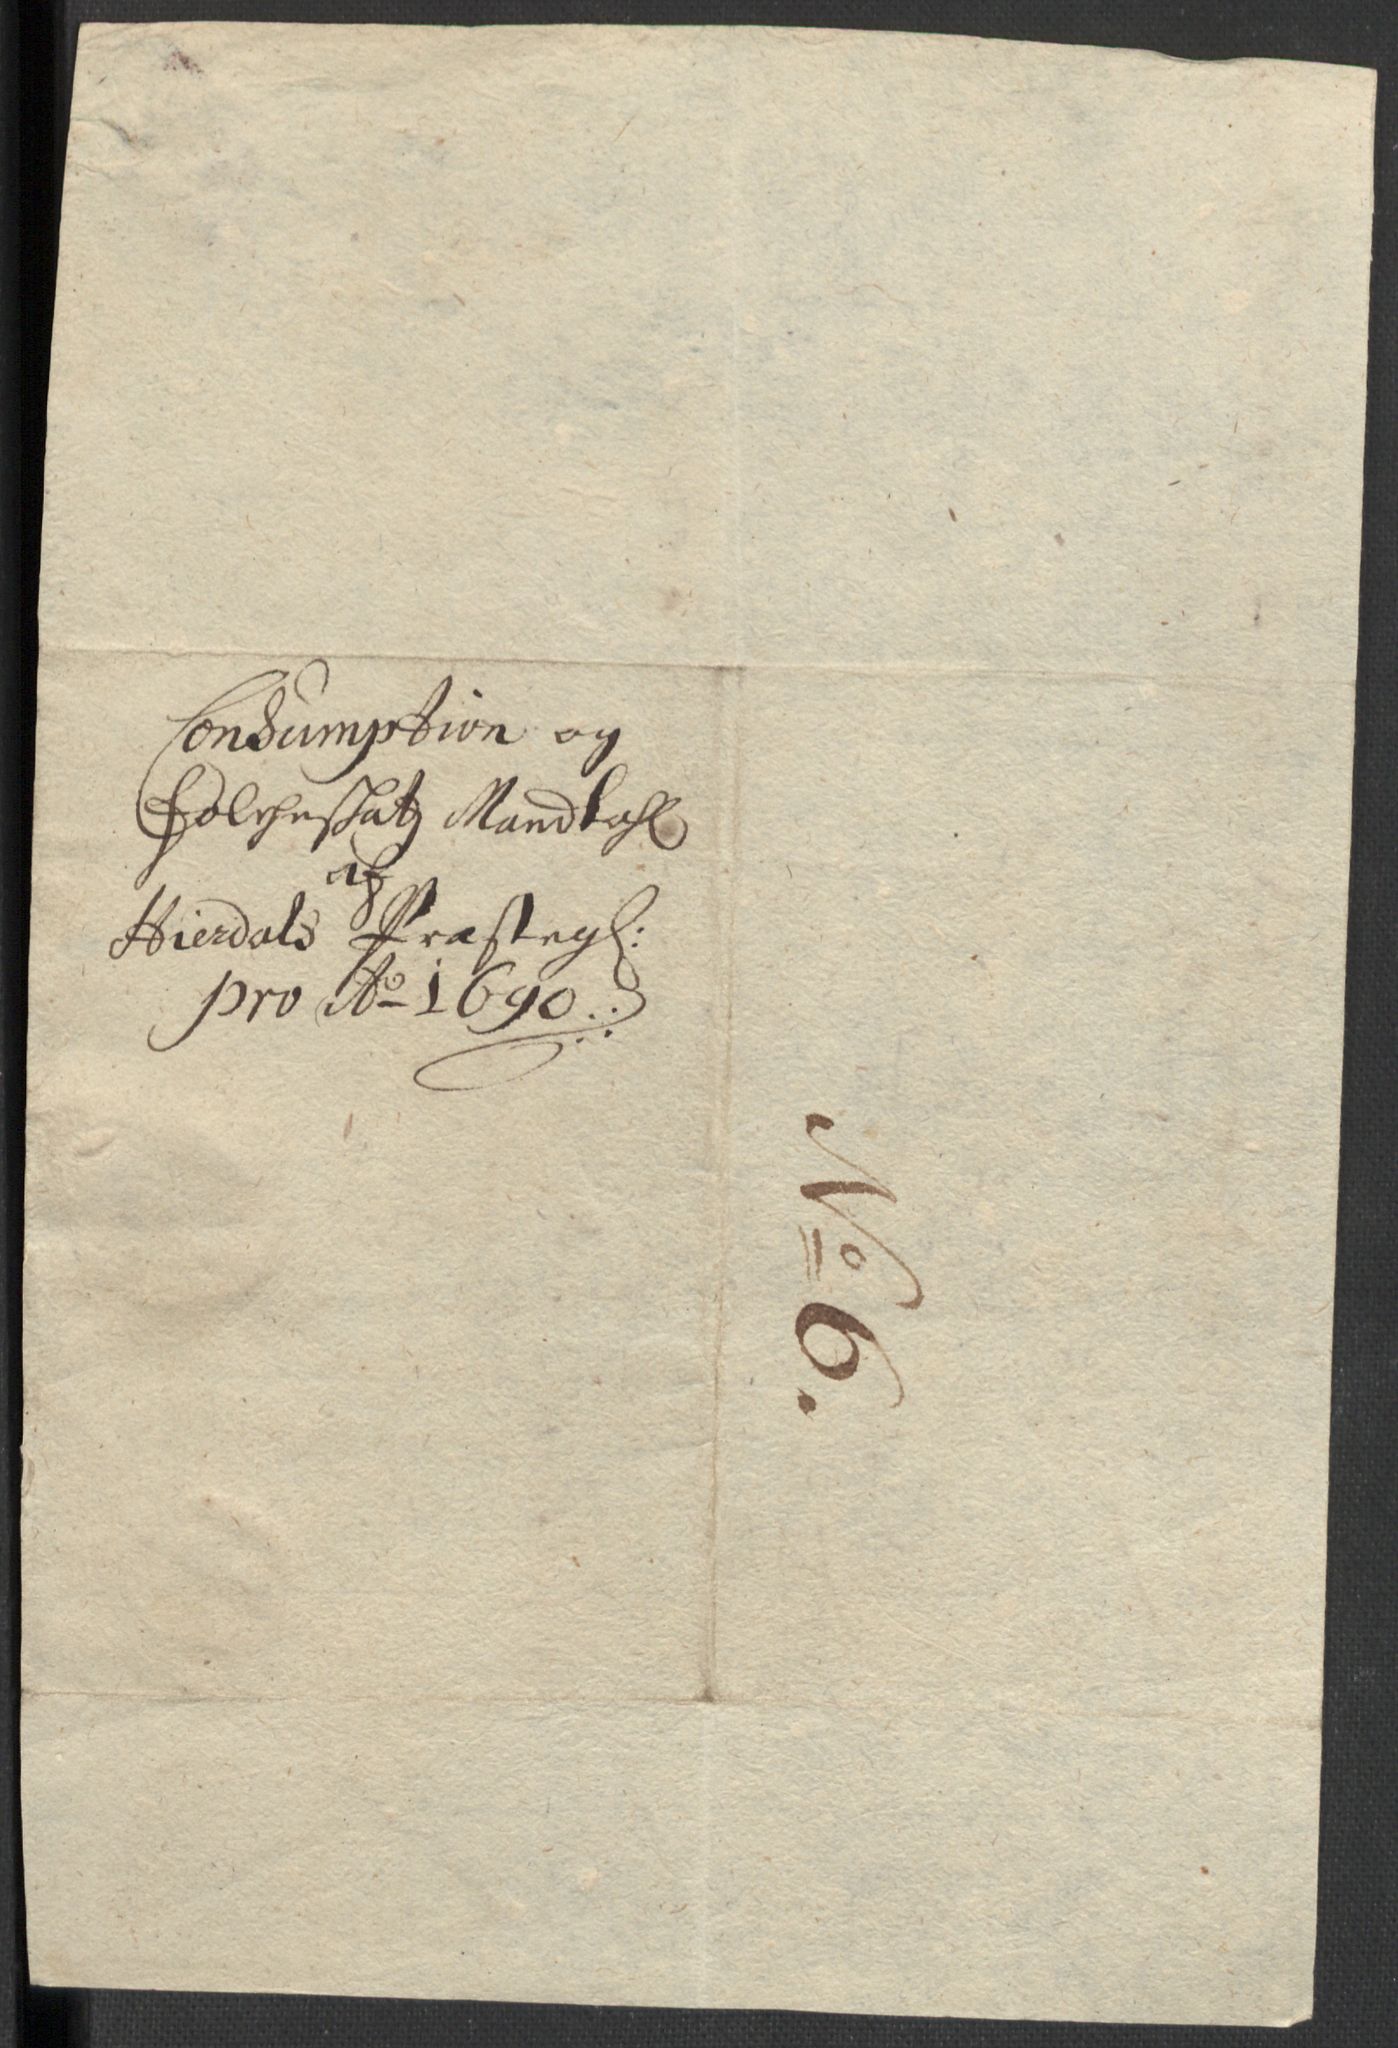 Consumption og
Folcheskatz Mandtahl
af
Hierdals Præstegl:
pro Ao 1690
No 6.